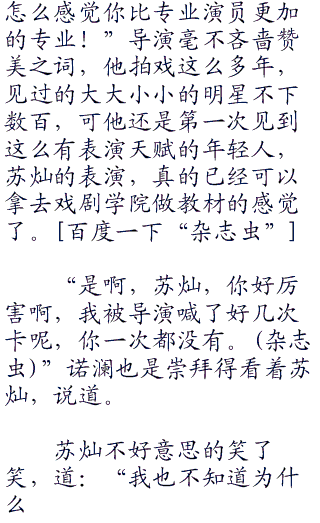 怎么感觉你比专业演员更加
的专业！”导演毫不吝啬赞
美之词，他拍戏这么多年，
见过的大大小小的明星不下
数百，可他还是第一次见到
这么有表演天赋的年轻人，
苏灿的表演，真的已经可以
拿去戏剧学院做教材的感觉
了。[百度一下“杂志虫”]
“是啊，苏灿，你好厉
害啊，我被导演喊了好几次
卡呢，你一次都没有。(杂志
虫)”诺澜也是崇拜得看着苏
灿，说道。
苏灿不好意思的笑了
笑，道：“我也不知道为什
么